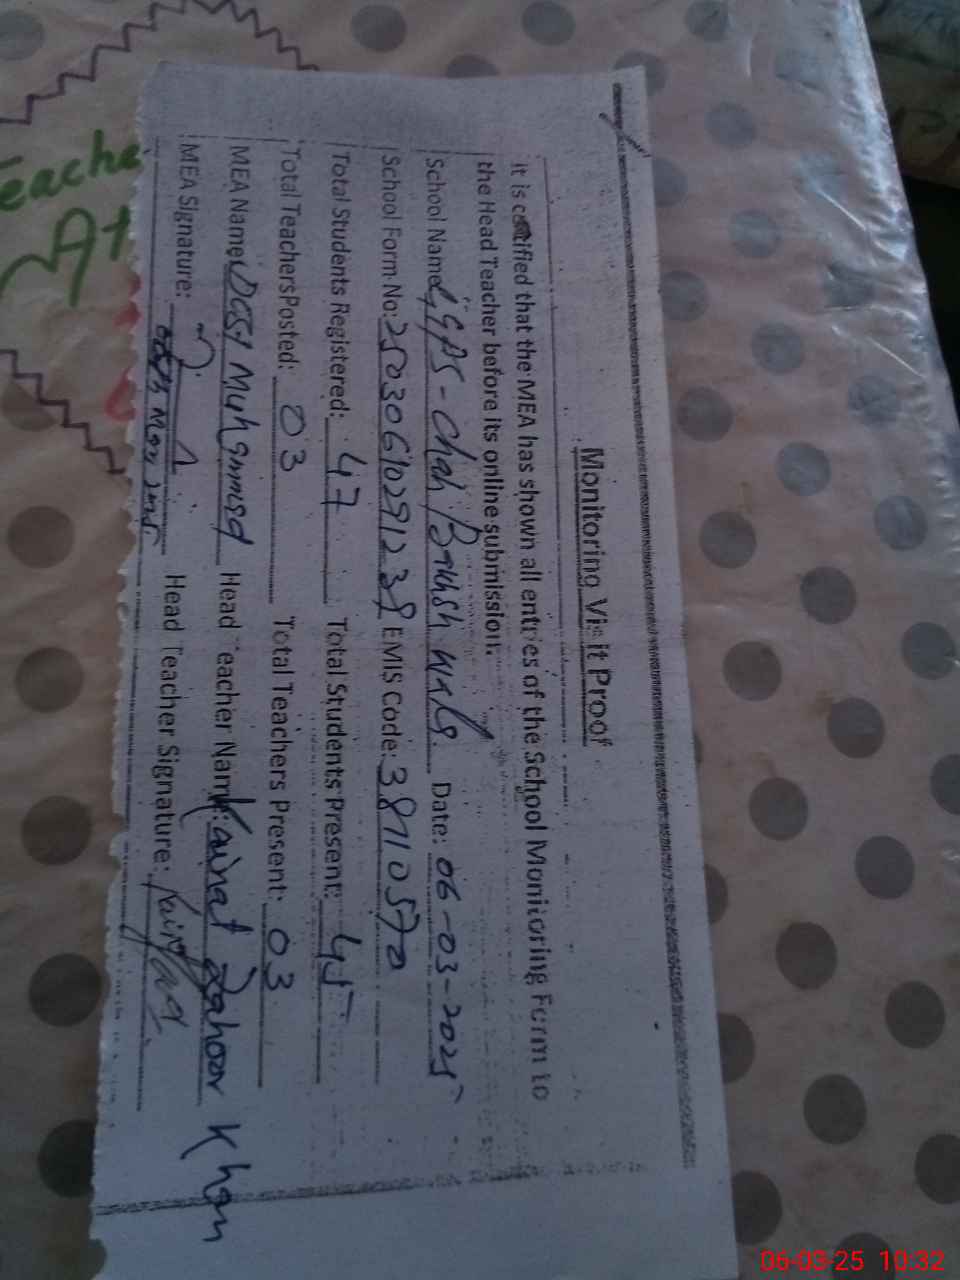 Monitoring Visit Proof
it is certified that the MEA has shown all entries of the School Monitoring Form to
the Head Teacher before its online submission.
School Name: GGPS - Chah Bakhsh Wala Date: 06-03-2025
School Form No: 25030610291238 EMIS Code: 38710570
Total Students Registered: 47 Total Students Present: 45
Total Teachers Posted: 03 Total Teachers Present: 03
MEA Name: Muhammad Head Teacher Name: Kainat Zahoor Khan
MEA Signature: Head Teacher Signature:
Teache
At
06-03-25 10:32